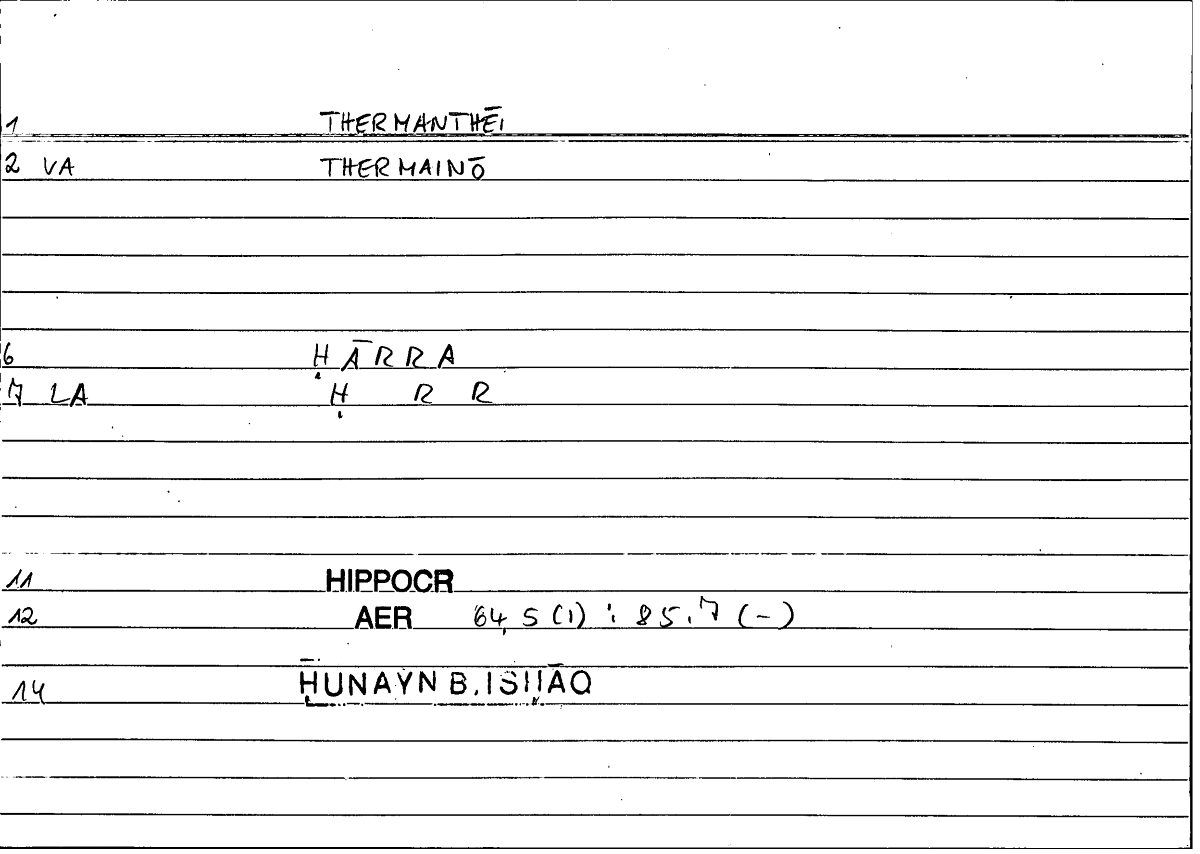 1 THERMANTHĒI
2 VA THERMAINŌ
6 ḤĀRRA
7 LA Ḥ R R
11 HIPPOCR
12 AER 64,5 (1) : 85.7 (-)
14 ḤUNAYN B. ISḤĀQ